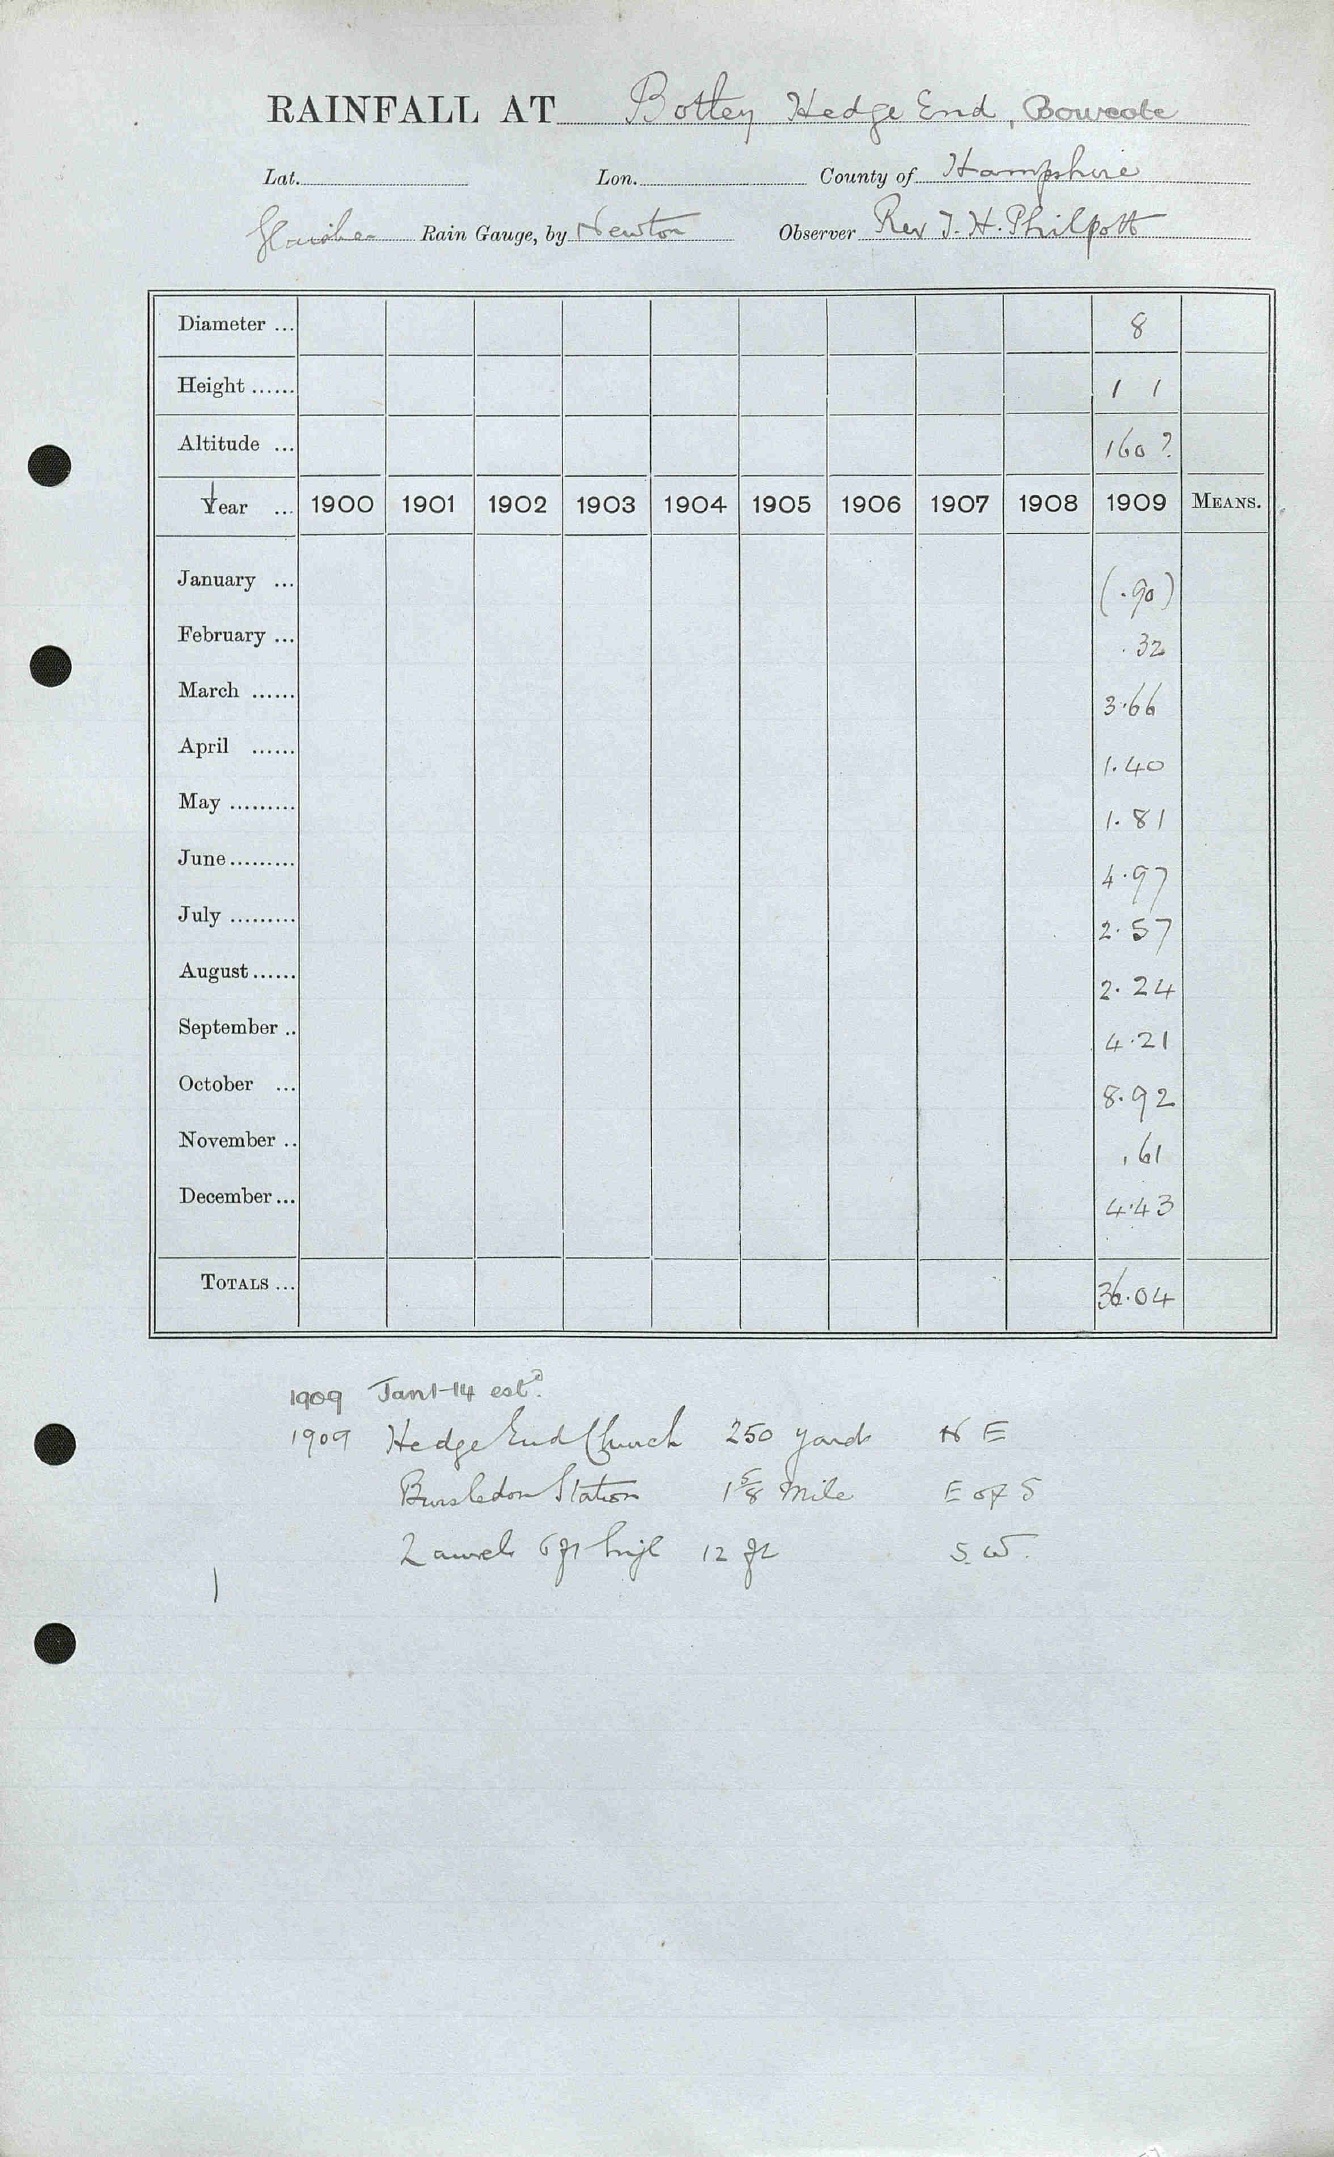 RAINFALL AT Botley Hedge End, Bowcote
Lat. Lon. County of Hampshire
Glaisher Rain Gauge, by Newton Observer Rev J. H. Philpott
Diameter ... 8
Height ...... 1 1
Altitude ... 160 ?
Year ... 1900 1901 1902 1903 1904 1905 1906 1907 1908 1909 MEANS.
January ... (.90)
February ... .32
March ...... 3.66
April ...... 1.40
May ......... 1.81
June ......... 4.97
July ......... 2.57
August ...... 2.24
September .. 4.21
October ... 8.92
November .. .61
December ... 4.43
TOTALS ... 36.04
1909 Jan 1-14 estd.
1909 Hedge End Church 250 yards N E
Bursledon Station 1 5/8 Mile E of S
Laurels 6 ft high 12 ft S.W.